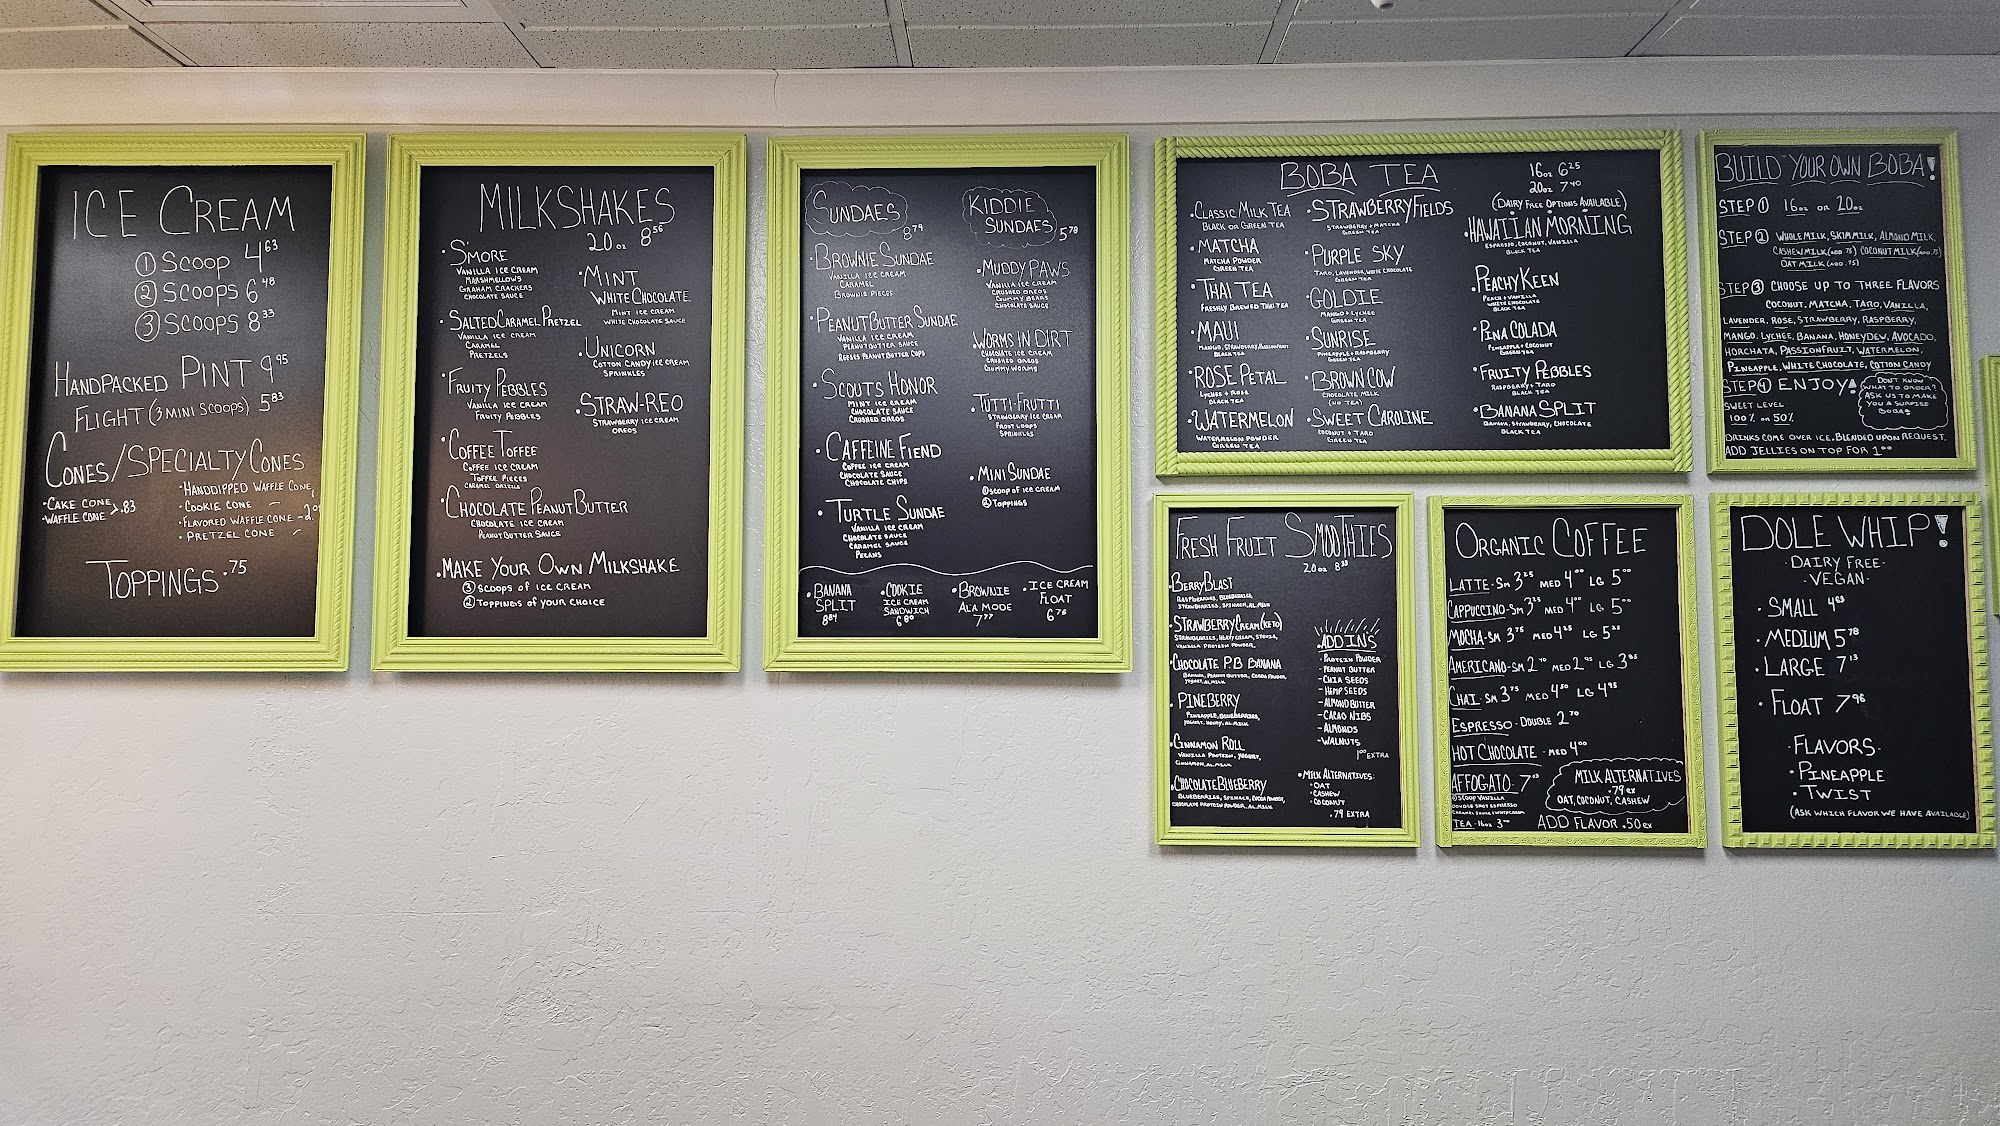 ICE CREAM
① SCOOP 4.63
② SCOOPS 6.48
③ SCOOPS 8.33
HANDPACKED PINT 9.95
FLIGHT (3 MINI SCOOPS) 5.83
CONES/SPECIALTY CONES
·CAKE CONE
·WAFFLE CONE > .83
·HANDDIPPED WAFFLE CONE
·COOKIE CONE
·FLAVORED WAFFLE CONE
·PRETZEL CONE
TOPPINGS .75
MILKSHAKES
20oz 8.56
·S'MORE
VANILLA ICE CREAM
MARSHMELLOWS
GRAHAM CRACKERS
CHOCOLATE SAUCE
·SALTED CARAMEL PRETZEL
VANILLA ICE CREAM
CARAMEL
PRETZELS
·FRUITY PEBBLES
VANILLA ICE CREAM
FRUITY PEBBLES
·COFFEE TOFFEE
COFFEE ICE CREAM
TOFFEE PIECES
CARAMEL DRIZZLE
·CHOCOLATE PEANUT BUTTER
CHOCOLATE ICE CREAM
PEANUT BUTTER SAUCE
·MINT
WHITE CHOCOLATE
MINT ICE CREAM
WHITE CHOCOLATE SAUCE
·UNICORN
COTTON CANDY ICE CREAM
SPRINKLES
·STRAW-REO
STRAWBERRY ICE CREAM
OREOS
·MAKE YOUR OWN MILKSHAKE
③ SCOOPS OF ICE CREAM
② TOPPINGS OF YOUR CHOICE
SUNDAES
8.79
·BROWNIE SUNDAE
VANILLA ICE CREAM
CARAMEL
BROWNIE PIECES
·PEANUT BUTTER SUNDAE
VANILLA ICE CREAM
PEANUT BUTTER SAUCE
REESES PEANUT BUTTER CUPS
·SCOUTS HONOR
MINT ICE CREAM
CHOCOLATE SAUCE
CRUSHED OREOS
·CAFFEINE FIEND
COFFEE ICE CREAM
CHOCOLATE SAUCE
CHOCOLATE CHIPS
·TURTLE SUNDAE
VANILLA ICE CREAM
CHOCOLATE SAUCE
CARAMEL SAUCE
PECANS
KIDDIE
SUNDAES 5.78
·MUDDY PAWS
VANILLA ICE CREAM
CRUSHED OREOS
GUMMY BEARS
CHOCOLATE SAUCE
·WORMS IN DIRT
CHOCOLATE ICE CREAM
CRUSHED OREOS
GUMMY WORMS
·TUTTI-FRUTTI
STRAWBERRY ICE CREAM
FROOT LOOPS
SPRINKLES
·MINI SUNDAE
① SCOOP OF ICE CREAM
② TOPPINGS
·BANANA
SPLIT
8.84
·COOKIE
ICE CREAM
SANDWICH
6.80
·BROWNIE
ALA MODE
7.77
·ICE CREAM
FLOAT
6.76
BOBA TEA
16oz 6.25
20oz 7.40
(DAIRY FREE OPTIONS AVAILABLE)
·CLASSIC MILK TEA
BLACK OR GREEN TEA
·MATCHA
MATCHA POWDER
GREEN TEA
·THAI TEA
FRESHLY BREWED THAI TEA
·MAUI
MANGO, STRAWBERRY, PASSIONFRUIT
BLACK TEA
·ROSE PETAL
LYCHEE + ROSE
BLACK TEA
·WATERMELON
WATERMELON POWDER
GREEN TEA
·STRAWBERRY FIELDS
STRAWBERRY + MATCHA
GREEN TEA
·PURPLE SKY
TARO, LAVENDER, WHITE CHOCOLATE
GREEN TEA
·GOLDIE
MANGO + LYCHEE
GREEN TEA
·SUNRISE
PINEAPPLE + RASPBERRY
GREEN TEA
·BROWN COW
CHOCOLATE MILK
(NO TEA)
·SWEET CAROLINE
COCONUT + TARO
GREEN TEA
·HAWAIIAN MORNING
ESPRESSO, COCONUT, VANILLA
BLACK TEA
·PEACHY KEEN
PEACH + VANILLA
WHITE CHOCOLATE
BLACK TEA
·PINA COLADA
PINEAPPLE + COCONUT
GREEN TEA
·FRUITY PEBBLES
RASPBERRY + TARO
BLACK TEA
·BANANA SPLIT
BANANA, STRAWBERRY, CHOCOLATE
BLACK TEA
BUILD YOUR OWN BOBA!
STEP ① 16oz OR 20oz
STEP ② WHOLE MILK, SKIM MILK, ALMOND MILK,
CASHEW MILK (ADD .75) COCONUT MILK (ADD .75)
OAT MILK (ADD .75)
STEP ③ CHOOSE UP TO THREE FLAVORS
COCONUT, MATCHA, TARO, VANILLA,
LAVENDER, ROSE, STRAWBERRY, RASPBERRY,
MANGO, LYCHEE, BANANA, HONEYDEW, AVOCADO,
HORCHATA, PASSIONFRUIT, WATERMELON,
PINEAPPLE, WHITE CHOCOLATE, COTTON CANDY
STEP ④ ENJOY!
SWEET LEVEL
100% OR 50%
DON'T KNOW
WHAT TO ORDER?
ASK US TO MAKE
YOU A SURPRISE
BOBA!
DRINKS COME OVER ICE. BLENDED UPON REQUEST.
ADD JELLIES ON TOP FOR 1.00
FRESH FRUIT SMOOTHIES
20oz 8.33
·BERRY BLAST
RASPBERRIES, BLUEBERRIES,
STRAWBERRIES, SPINACH, AL.MILK
·STRAWBERRY CREAM (KETO)
STRAWBERRIES, HEAVY CREAM, STEVIA,
VANILLA PROTEIN POWDER
·CHOCOLATE P.B BANANA
BANANA, PEANUT BUTTER, COCOA POWDER,
YOGURT, AL.MILK
·PINEBERRY
PINEAPPLE, BLUEBERRIES,
YOGURT, HONEY, AL.MILK
·CINNAMON ROLL
VANILLA PROTEIN, YOGURT,
CINNAMON, AL.MILK
·CHOCOLATE BLUEBERRY
BLUEBERRIES, SPINACH, COCOA POWDER,
CHOCOLATE PROTEIN POWDER, AL.MILK
ADD IN'S
-PROTEIN POWDER
-PEANUT BUTTER
-CHIA SEEDS
-HEMP SEEDS
-ALMOND BUTTER
-CACAO NIBS
-ALMONDS
-WALNUTS
1.00 EXTRA
·MILK ALTERNATIVES:
·OAT
·CASHEW
·COCONUT
.79 EXTRA
ORGANIC COFFEE
LATTE-SM 3.25 MED 4.00 LG 5.00
CAPPUCCINO-SM 3.25 MED 4.00 LG 5.00
MOCHA-SM 3.75 MED 4.25 LG 5.25
AMERICANO-SM 2.40 MED 2.95 LG 3.85
CHAI-SM 3.75 MED 4.50 LG 4.95
ESPRESSO-DOUBLE 2.70
HOT CHOCOLATE-MED 4.00
AFFOGATO-
① SCOOP VANILLA
DOUBLE SHOT ESPRESSO
TEA-16oz
MILK ALTERNATIVES
.79 ex
OAT, COCONUT, CASHEW
ADD FLAVOR .50 ex
DOLE WHIP!
·DAIRY FREE·
·VEGAN·
·SMALL 4.63
·MEDIUM 5.78
·LARGE 7.13
·FLOAT 7.96
·FLAVORS·
·PINEAPPLE
·TWIST
(ASK WHICH FLAVOR WE HAVE AVAILABLE)